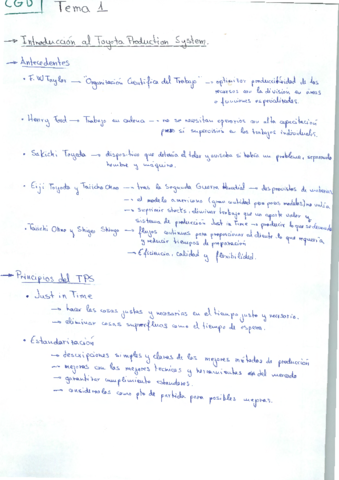 CGD
Tema 1
→ Introducción al Toyota Production System.
→ Antecedentes
• F.W Taylor → "Organización Científica del Trabajo" → optimizar productividad de los
recursos con la división en áreas
o funciones especializadas.
• Henry Ford → Trabajo en cadena → no se necesitan operarios con alta capacitación
pero si supervisión en los trabajos individuales.
• Sakichi Toyoda → dispositivo que detenía el telar y avisaba si había un problema, separando
hombre y máquina.
• Eiji Toyoda y Taiicho Ohno → tras la Segunda Guerra Mundial → desprovistos de
→ el modelo americano (gran cantidad para pocos modelos) no valía
→ suprimir stocks, eliminar trabajo que no aporta valor
sistema de producción Just in Time → producir lo que se demanda
• Taiichi Ohno y Shigeo Shingo → flujos continuos para proporcionar al cliente lo que requería
y reducir tiempos de preparación
→ Eficiencia, calidad y flexibilidad.
→ Principios del TPS
• Just in Time
→ hacer las cosas justas y necesarias en el tiempo justo y necesario.
→ eliminar cosas superfluas como el tiempo de espera.
• Estandarización
→ descripciones simples y claras de los mejores métodos de producción
→ mejoras con las mejores técnicas y herramientas del mercado
→ garantizar cumplimiento estándares.
→ considerarlas como pto de partida para posibles mejoras.